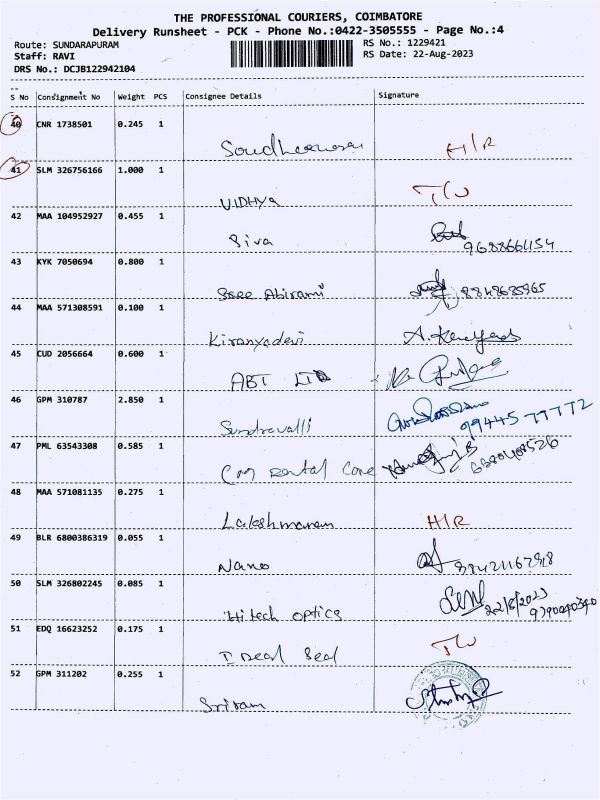 THE PROFESSIONAL COURIERS, COIMBATORE
Delivery Runsheet - PCK - Phone No.:0422-3505555 - Page No.:4
Route: SUNDARAPURAM
RS No.: 1229421
Staff: RAVI
RS Date: 22-Aug-2023
DRS No.: DCJB122942104
S No Consignment No Weight PCS Consignee Details Signature
40 CNR 1738501 0.245 1
H/R
41 SLM 326756166 1.000 1
VIDHYA
42 MAA 104952927 0.455 1
Siva 9688666154
43 KYK 7050694 0.800 1
Sree Abirami 8848685965
44 MAA 571308591 0.100 1
Kiranyadevi
45 CUD 2056664 0.600 1
ABT LTD
46 GPM 310787 2.850 1
Sundravalli 9944577772
47 PML 63543308 0.585 1
Dental Care
48 MAA 571081135 0.275 1
Lakshmanan H/R
49 BLR 6800386319 0.055 1
Nano
50 SLM 326802245 0.085 1
Hitech optics 22/8/2023
51 EDQ 16623252 0.175 1
Ideal Seal
52 GPM 311202 0.255 1
Sriram